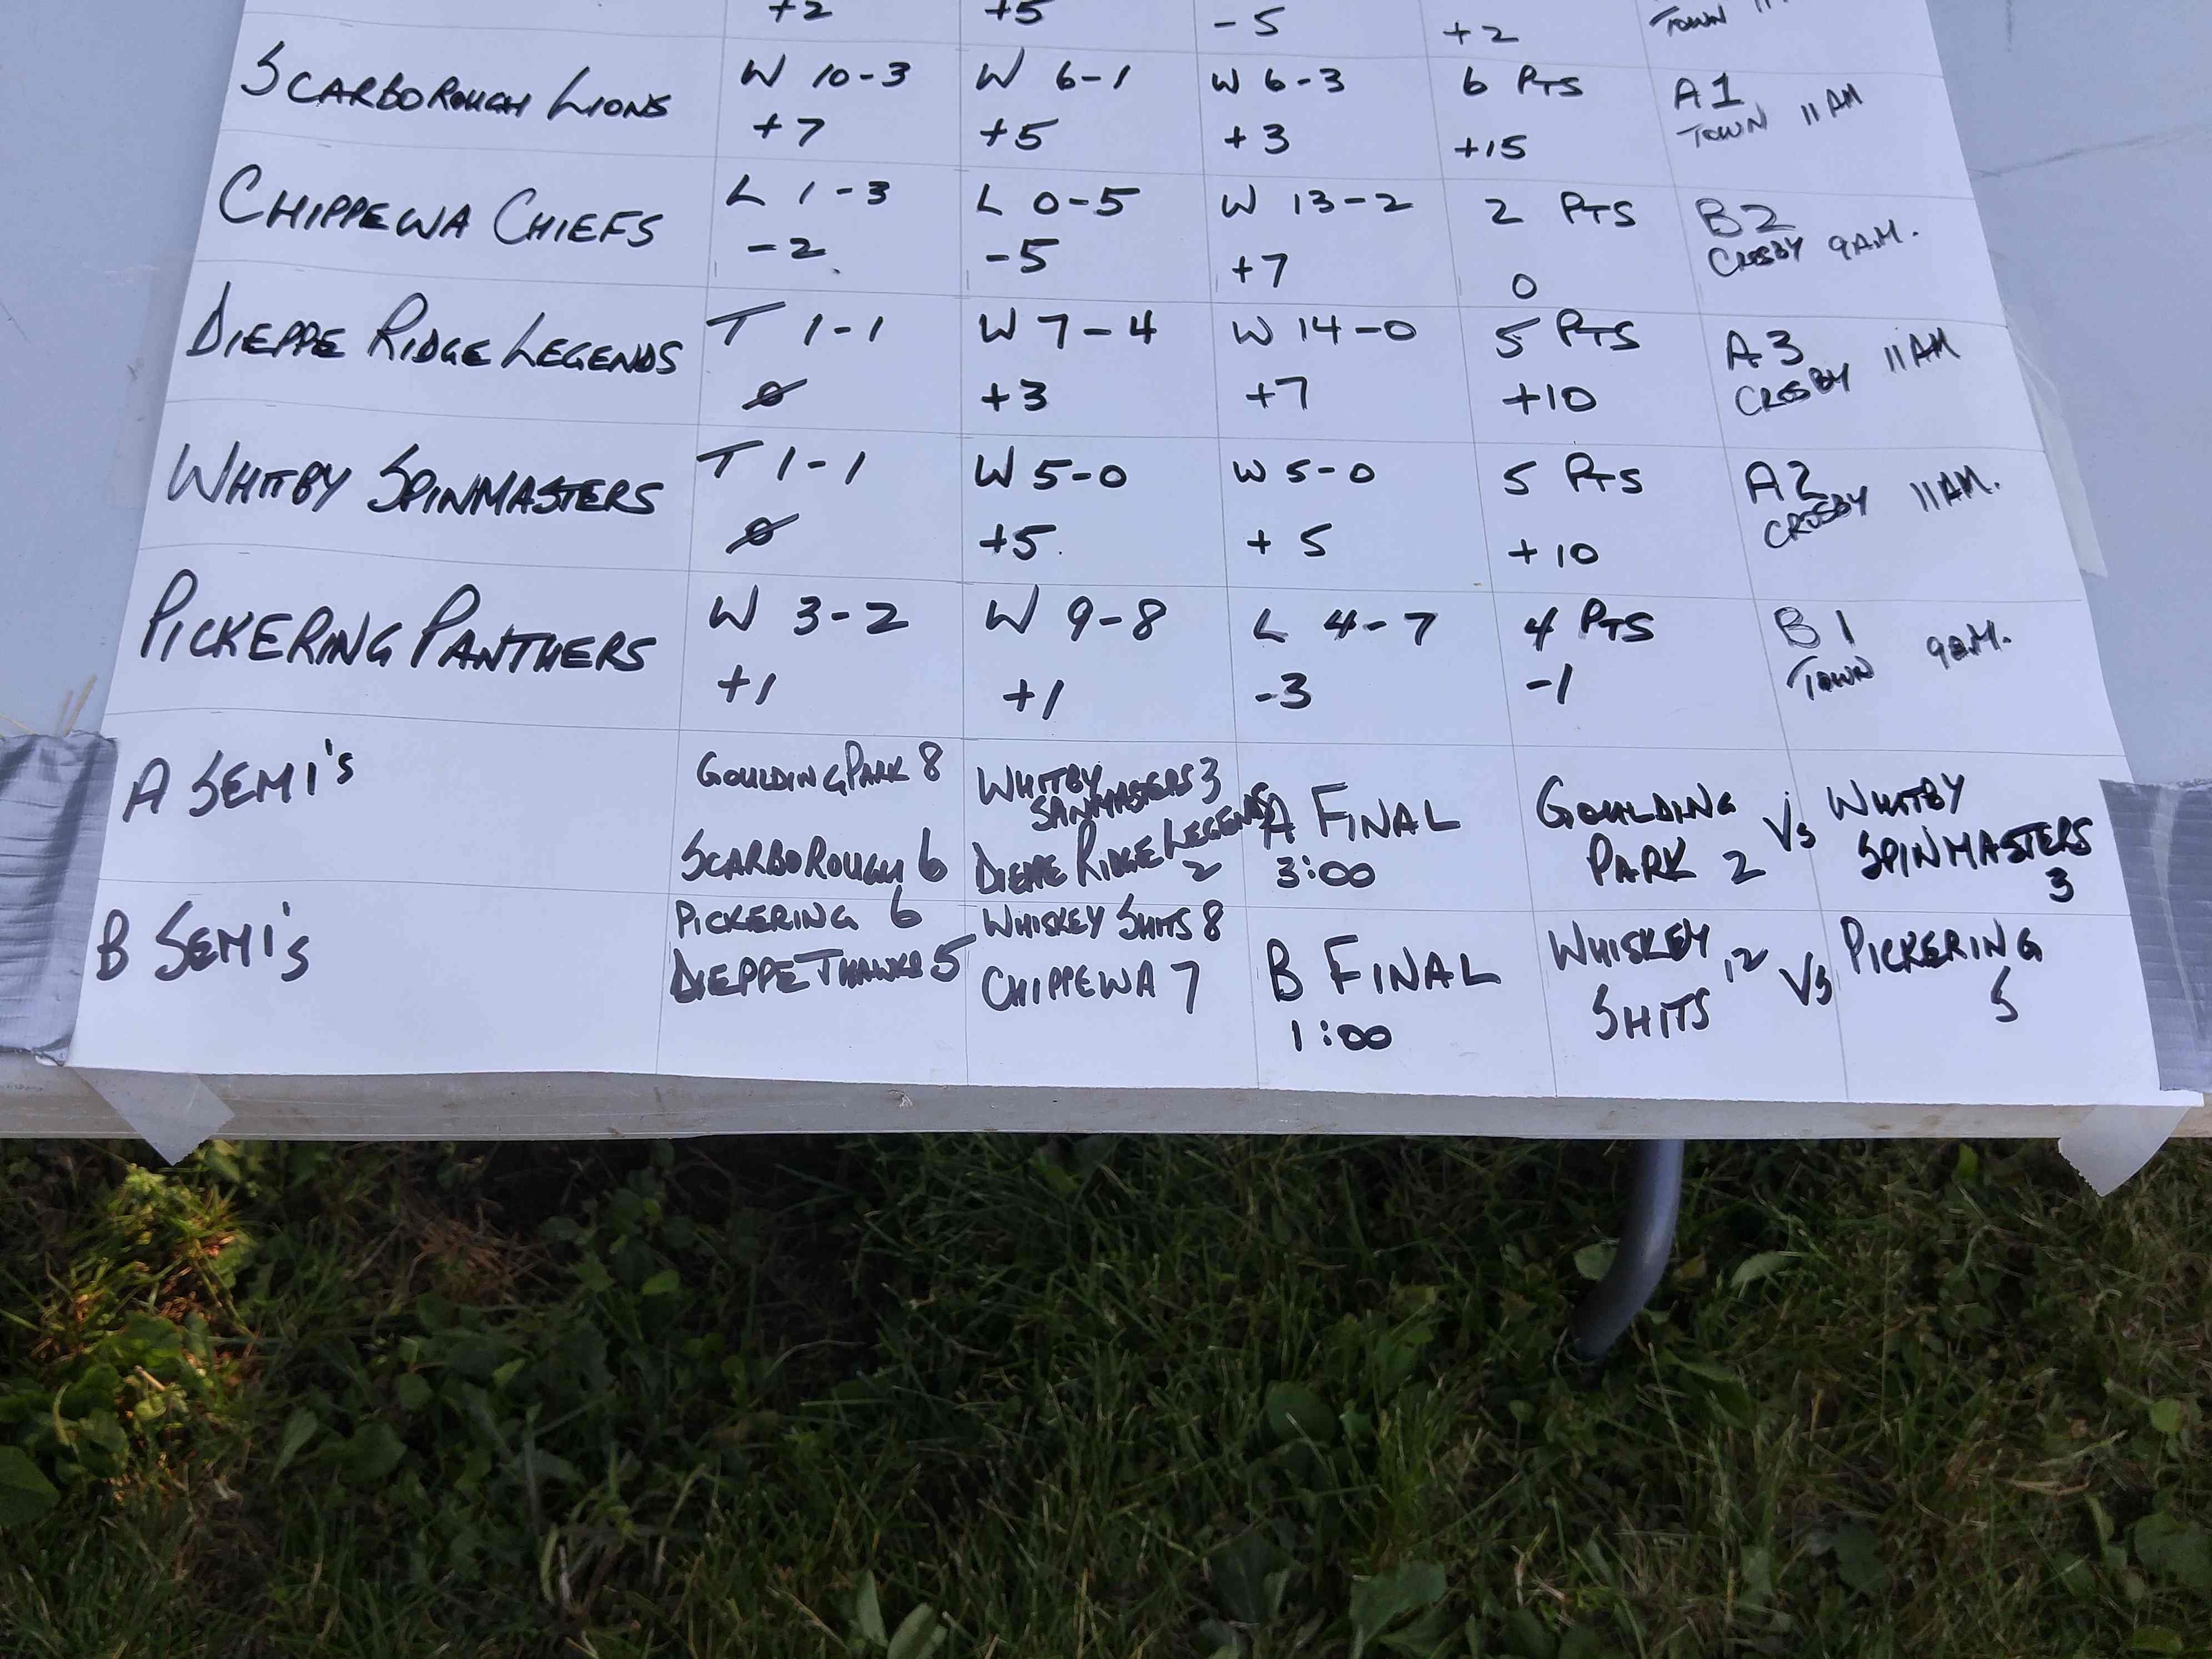 +2 +5 -5 +2 TOWN
SCARBOROUGH LIONS W 10-3 W 6-1 W 6-3 6 PTS A1
+7 +5 +3 +15 TOWN 11 AM
CHIPPEWA CHIEFS L 1-3 L 0-5 W 13-2 2 PTS B2
-2 -5 +7 0 CROSBY 9 A.M.
DIEPPE RIDGE LEGENDS T 1-1 W 7-4 W 14-0 5 PTS A3
0 +3 +7 +10 CROSBY 11 AM
WHITBY SPINMASTERS T 1-1 W 5-0 W 5-0 5 PTS A2
0 +5 +5 +10 CROSBY 11 AM.
PICKERING PANTHERS W 3-2 W 9-8 L 4-7 4 PTS B1
+1 +1 -3 -1 TOWN 9 a.M.
A SEMI'S
GOULDING PARK 8
SCARBOROUGH 6
WHITBY
SPINMASTERS 3
DIEPPE RIDGE LEGENDS
2
A FINAL
3:00
GOULDING
PARK 2
Vs
WHITBY
SPINMASTERS
3
B SEMI's
PICKERING 6
DIEPPE THAWKS 5
WHISKEY SHITS 8
CHIPPEWA 7
B FINAL
1:00
WHISKEY
SHITS 12
Vs
PICKERING
5